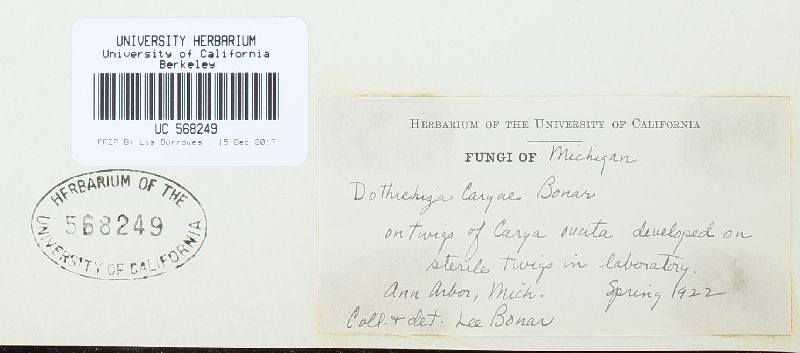 UNIVERSITY HERBARIUM
University of California
Berkeley
UC 568249
PREP BY Lia Burrowes , 15 Dec 2017
HERBARIUM OF THE
568249
UNIVERSITY OF CALIFORNIA
HERBARIUM OF THE UNIVERSITY OF CALIFORNIA
FUNGI OF Michigan
Dothichiza Caryae Bonar
on twigs of Carya ovata developed on
sterile twigs in laboratory.
Ann Arbor, Mich. Spring 1922
Coll. + det. Lee Bonar